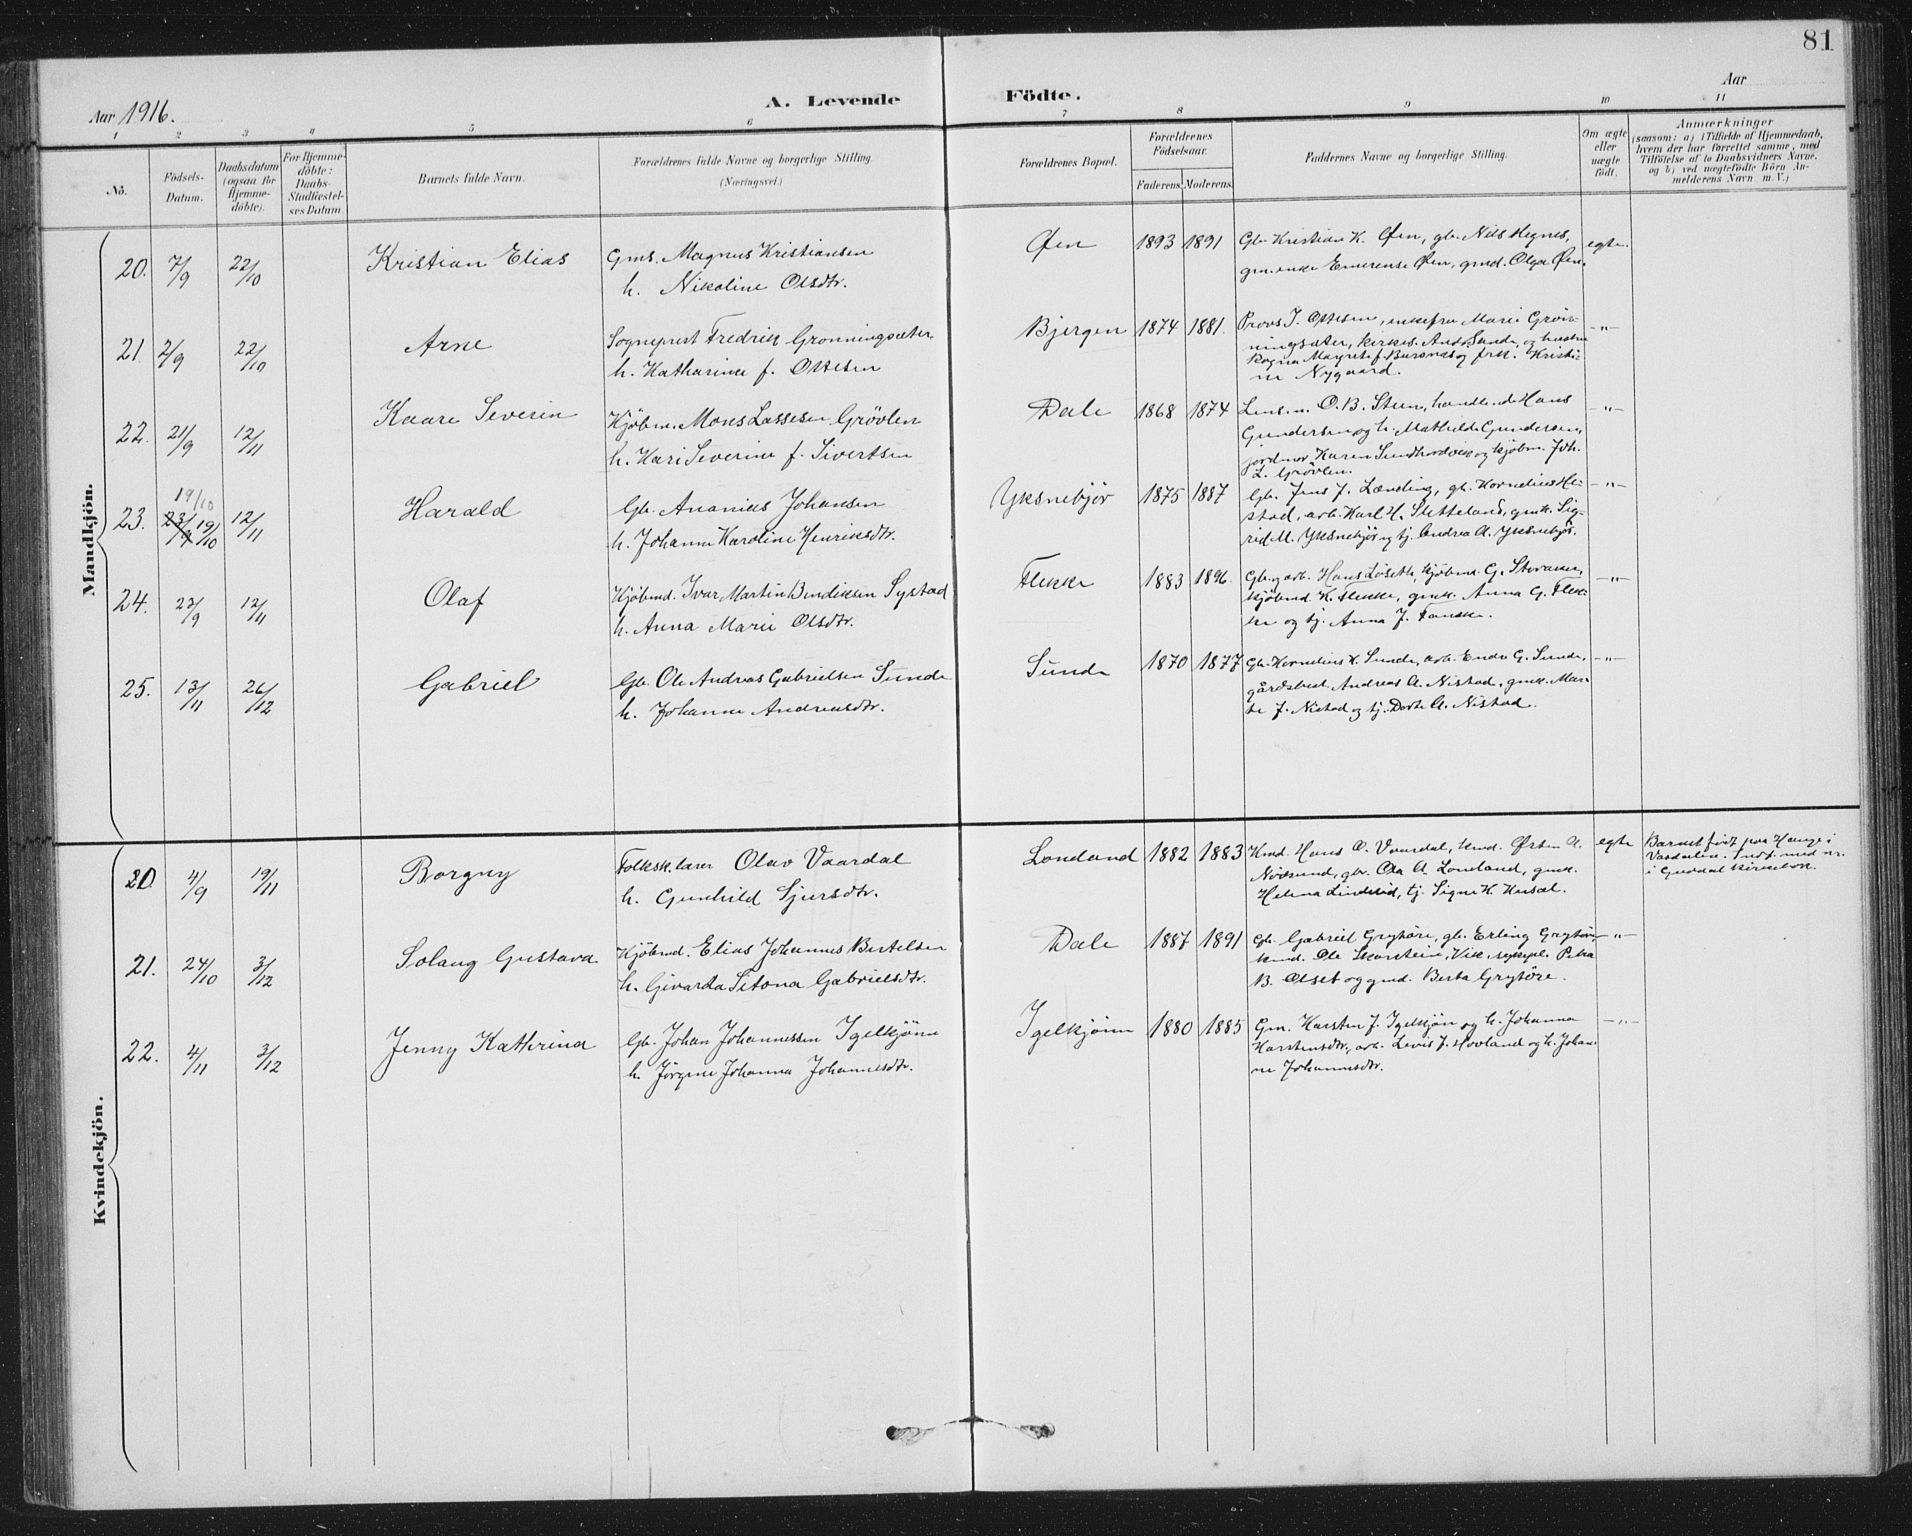 81
Aar 1916.
A. Levende Födte.
Aar
1 2 3 4 5 6 7 8 9 10 11
No.
Födsels-Datum.
Daabsdatum (ogsaa for Hjemme-döbte).
For Hjemme-döbte: Daabs-Stadfæstel-ses Datum.
Barnets fulde Navn.
Forældrenes fulde Navne og borgerlige Stilling. (Næringsvei.)
Forældrenes Bopæl.
Forældrenes Födselsaar.
Faderens. Moderens.
Faddernes Navne og borgerlige Stilling.
Om ægte eller uægte födt.
Anmærkninger
(saasom: a) i Tilfælde af Hjemmedaab,
hvem der har forrettet samme, med
Tilföielse af to Daabsvidners Navne,
og b) ved uægtefödte Börn An-
melderens Navn m. V.)
Mandkjön.
20. 7/9 22/10 Kristian Elias
Gms. Magnus Kristiansen
h. Nikoline Olsdtr.
Øen 1893 1891
Gb. Kristian K. Øen, gb. Nils
gm. enke Emerense Øen, gmd. Olga Øen.
egte.
21. 2/9 22/10 Arne
Sogneprest Fredrik Grønningsæter
h. Katharina f. Ottesen
Bjergen 1874 1881.
Provs J. Ottesen, enkefru Marie Grön-
ningsæter, kirkes. And. Sunde og hustru
Ragna Margrete f. og frk. Kristi-
ne Nygaard.
-"-
22. 21/9 12/11 Kaare Severin
Kjöbm. Mons Lassesen Grövlen
h. Kari Severine f. Sivertsen
Dale 1868 1874
Lensm. O. B. Steen, handlende Hans
Gundersen og h. Mathilde Gundersen,
jordmor Karen Sundhordvik og kjöbm. Joh.
L. Grövlen.
-"-
19/10
23. 23/9 19/10 12/11 Harald
Gb. Ananias Johansen
h. Johanne Karoline Henriksdtr.
Yksnebjör 1875 1887
Gb. Jens J. Lænding, gb. Kornelius He-
stad, arb. Karl H. Sletteland, gmk. Sig-
rid M. Yksnebjör og tj. Andrea A. Yksnebjör.
-"-
24. 23/9 12/11 Olaf
Kjöbmd. Ivar Martin Bendiksen Systad
h. Anna Marie Olsdtr.
Flekke 1883 1896
Gb. g arb. Hans Löseth, kjöbmd. G.
kjöbmd. K. Flekke, gmk. Anna G. Flek-
ke og tj. Anna J.
-"-
25. 13/11 26/12 Gabriel
Gb. Ole Andreas Gabrielsen Sunde
h. Johanne Andreasdtr.
Sunde 1870 1877
Gb. Kornelius K. Sunde, arb. Endre G. Sunde,
gårdsbest. Andreas A. Nistad, gmk. Mar-
te J. Nistad og tj. Dorte A. Nistad.
-"-
Kvindekjön.
20. 4/9 19/11 Borgny
Folkesk.lærer Olav Vaardal
h. Gunhild Sjursdtr.
Loneland 1882 1883
Kmd. Hans O. Vaardal, kmd. Østen A.
gb. Ola A. Loneland, gmk.
Helena tj. Signe H.
egte
Barnet født paa Hauge i
Vardalen. Indf. med nr.
i Guddal kirkebok.
21. 24/10 3/12 Solaug Gustava
Kjöbmd. Elias Johannes Bertelsen
h. Givarda Sitona Gabrielsdtr.
Dale 1887 1891
Gb. Gabriel Grytöre, gb. Erling Grytöre
kmd. Ole Skorstein, Vik, sypge. Petra
B. Olset og gmd. Berta Grytöre.
-"-
22. 4/11 3/12 Jenny Kathrina
Gb. Johan Johannessen Igelkjönn
h. Jörgine Johanna Johannesdtr.
Igelkjönn 1880 1885
Gm. Karsten J. Igelkjön og h. Johanna
Karstensdtr., arb. Levis J. Hovland og h. Johan-
ne Johannesdtr.
-"-